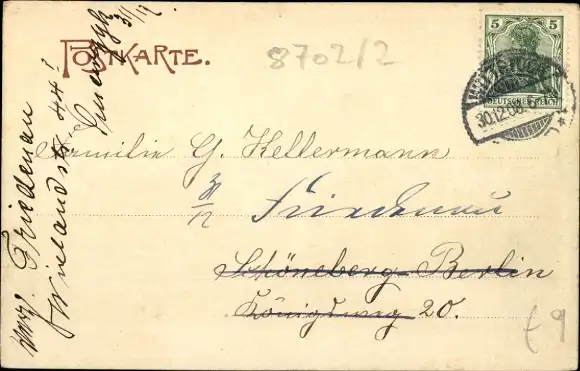 POSTKARTE.
8702/2
5
DEUTSCHES REICH
30.12.08.
Familie G. Kellermann
30/12
Friedenau
Schöneberg-Berlin
Königsweg 20.
Verz. Friedenau
Wielandstr 44!
31/12